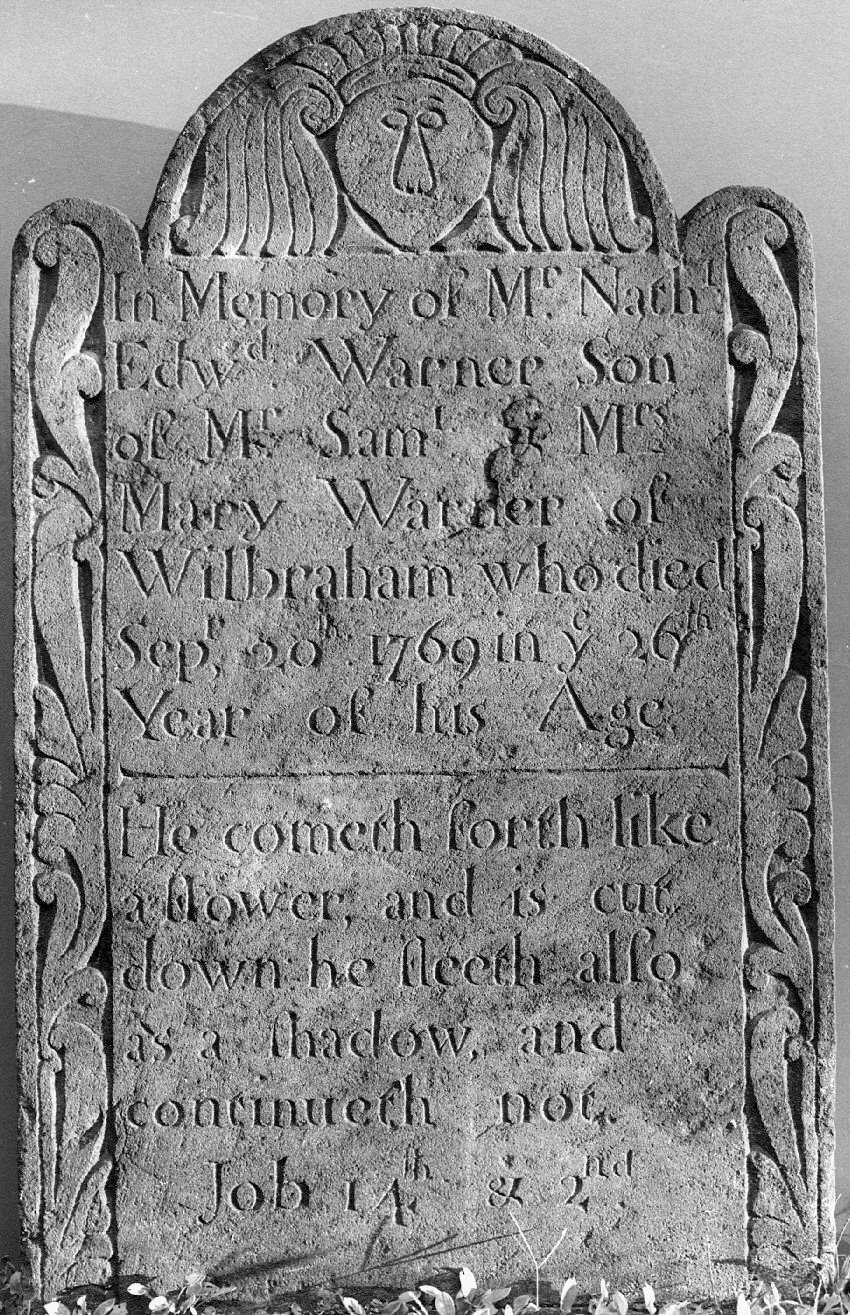 In Memory of Mr. Nathl
Edwd. Warner Son
of Mr. Saml. & Mrs
Mary Warner of
Wilbraham who died
Sept, 20th. 1769 in ye 26th
Year of his Age.
He cometh forth like
a flower, and is cut
down, he fleeth alſo
as a ſhadow, and
continueth not.
Job 14th & 2nd